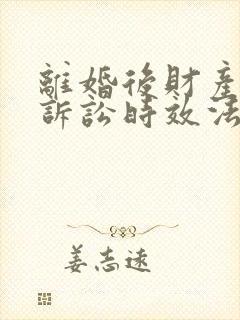 離婚後財產
訴訟時效法
姜志遠